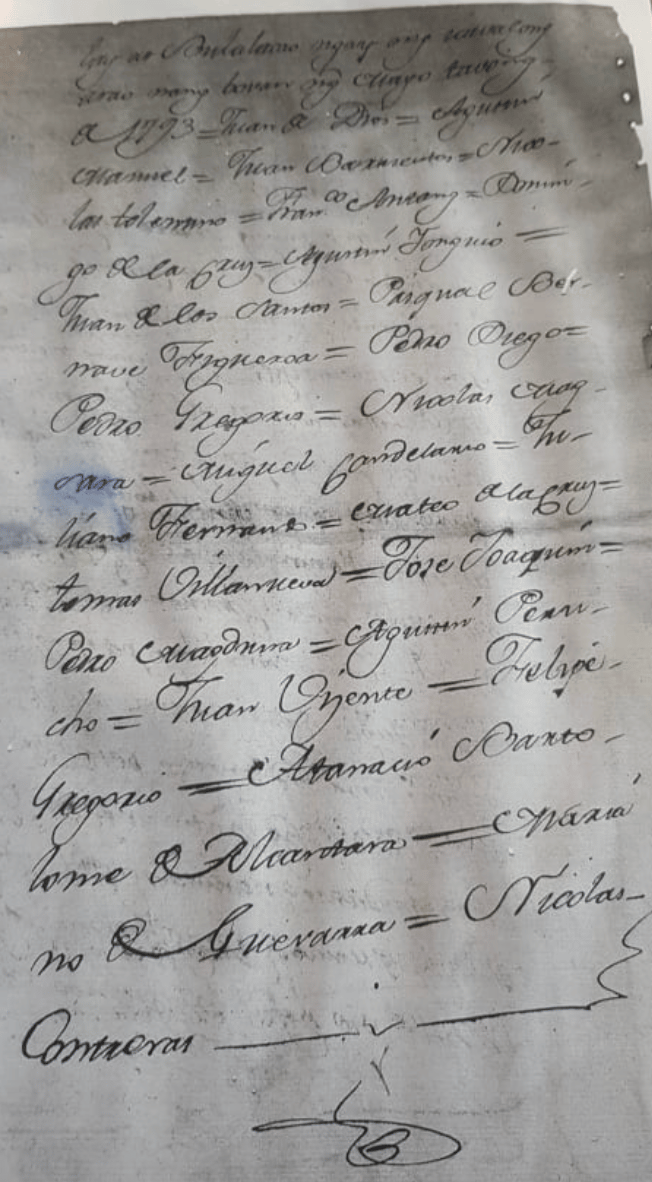 ng arao nang bouan ng Mayo taoong
de 1793 = Juan de Dios = Agustin
Manuel = Juan Sarmientos = Nico-
las tolentino = Fran.co = Domin-
go de la Cruz = Agustin Tongcio =
Juan de los Santos = Pasqual Ber-
nave Figueroa = Pedro Diego =
Pedro Gregorio = Nicolas Mag-
sara = Miguel Candelario = Ju-
liano Fernand.s = Mateo de la Cruz =
tomas Villanueva = Jose Joaquin =
Pedro = Agustin Peru-
cho = Juan Vizente = Felipe
Gregorio = Atanacio Barto-
lome de Alcantara = Maria
no de Guevarra = Nicolas
Contreras